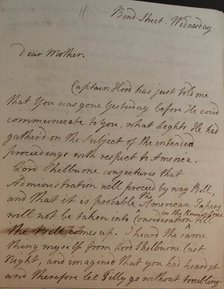 Bond Street. Wednesday.
Dear Mother.
Captain Hood has just told me
that You was gone Yesterday before He could
communicate to You, what Lights He had
gatherd on the Subject of the intended
proceedings with respect to America.
Lord Shelburne conjectures that
Administration will proceed by way Bill,
and that it is probable the American Papers
will not be taken into Consideration till
in the House of Com
comes up. I heard the
thing myself from Lord Shelburne last
Night, and imagined that you had heard it
and therefore let Tilly go without troubling